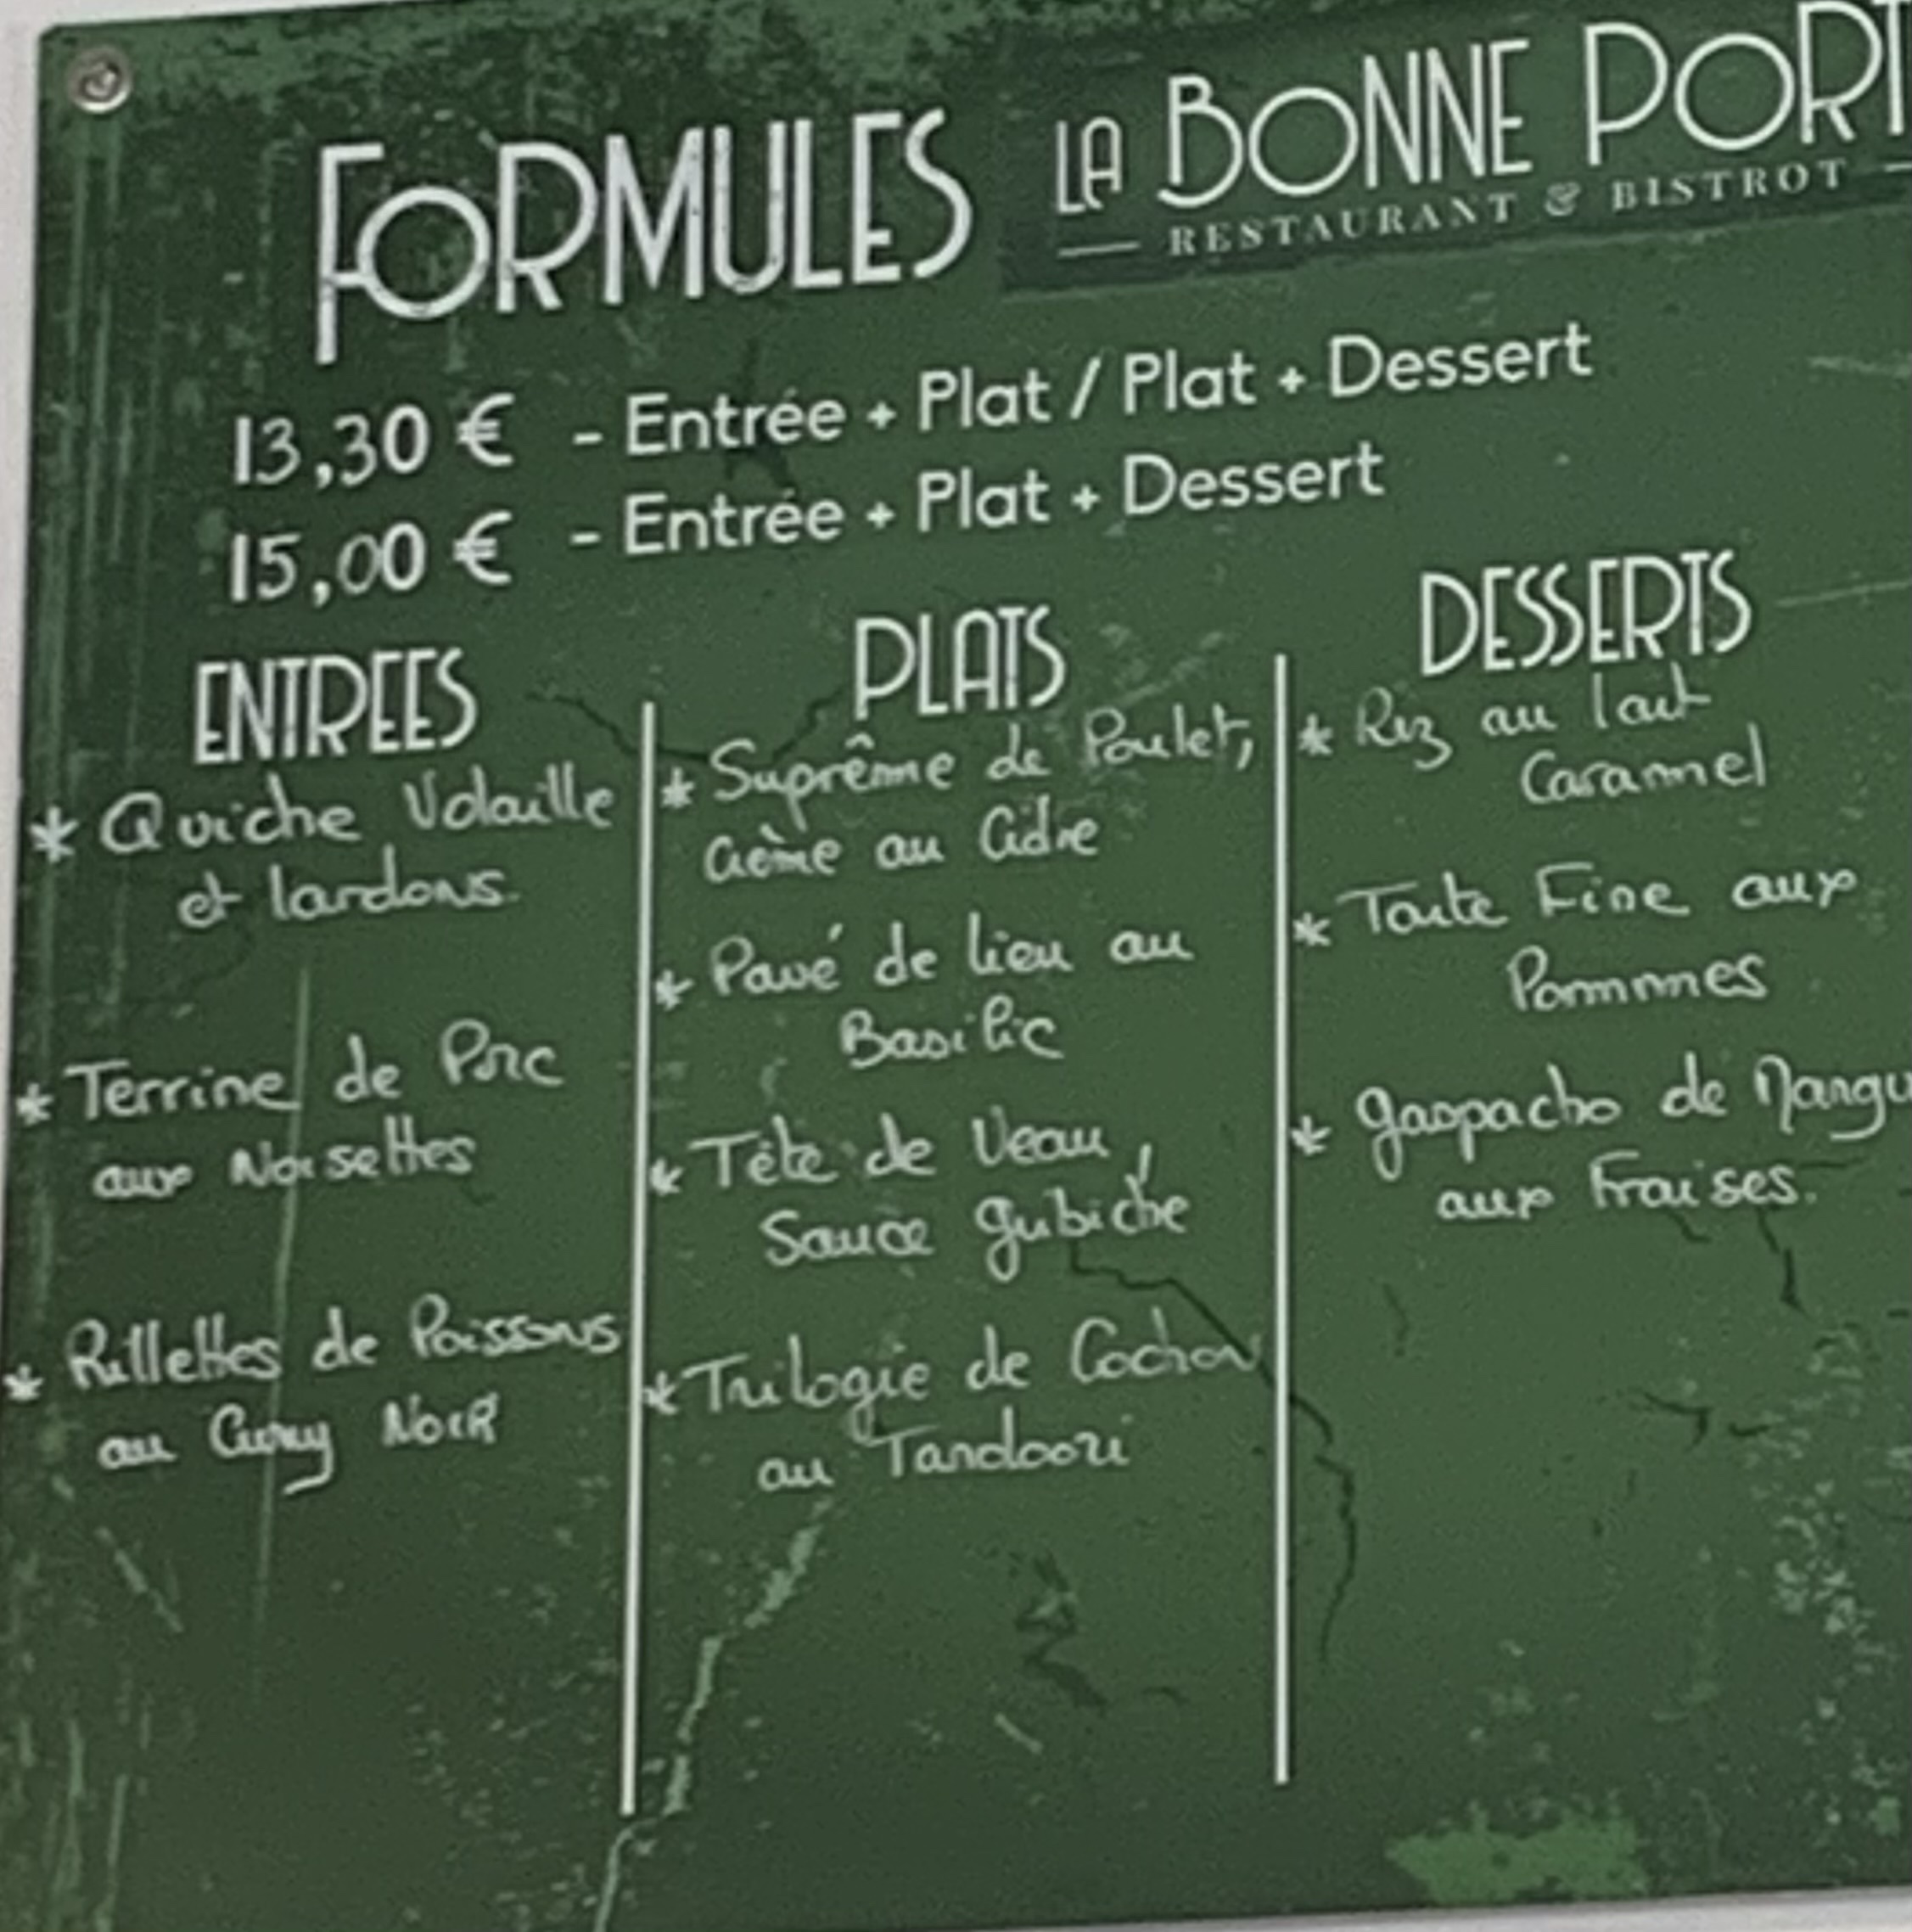 FORMULES
LA BONNE PORT
RESTAURANT & BISTROT
13,30 € - Entrée + Plat / Plat + Dessert
15,00 € - Entrée + Plat + Dessert
ENTREES
* Quiche Volaille
et lardons.
* Terrine de Porc
aux Noisettes
* Rillettes de Poissons
au Curry Noir
PLATS
* Suprême de Poulet,
Crème au Cidre
* Pavé de lieu au
Basilic
* Tête de Veau,
Sauce gribiche
* Trilogie de Cochon
au Tandoori
DESSERTS
* Riz au lait
Caramel
* Tarte Fine aux
Pommes
* Gaspacho de Mangu
aux Fraises.